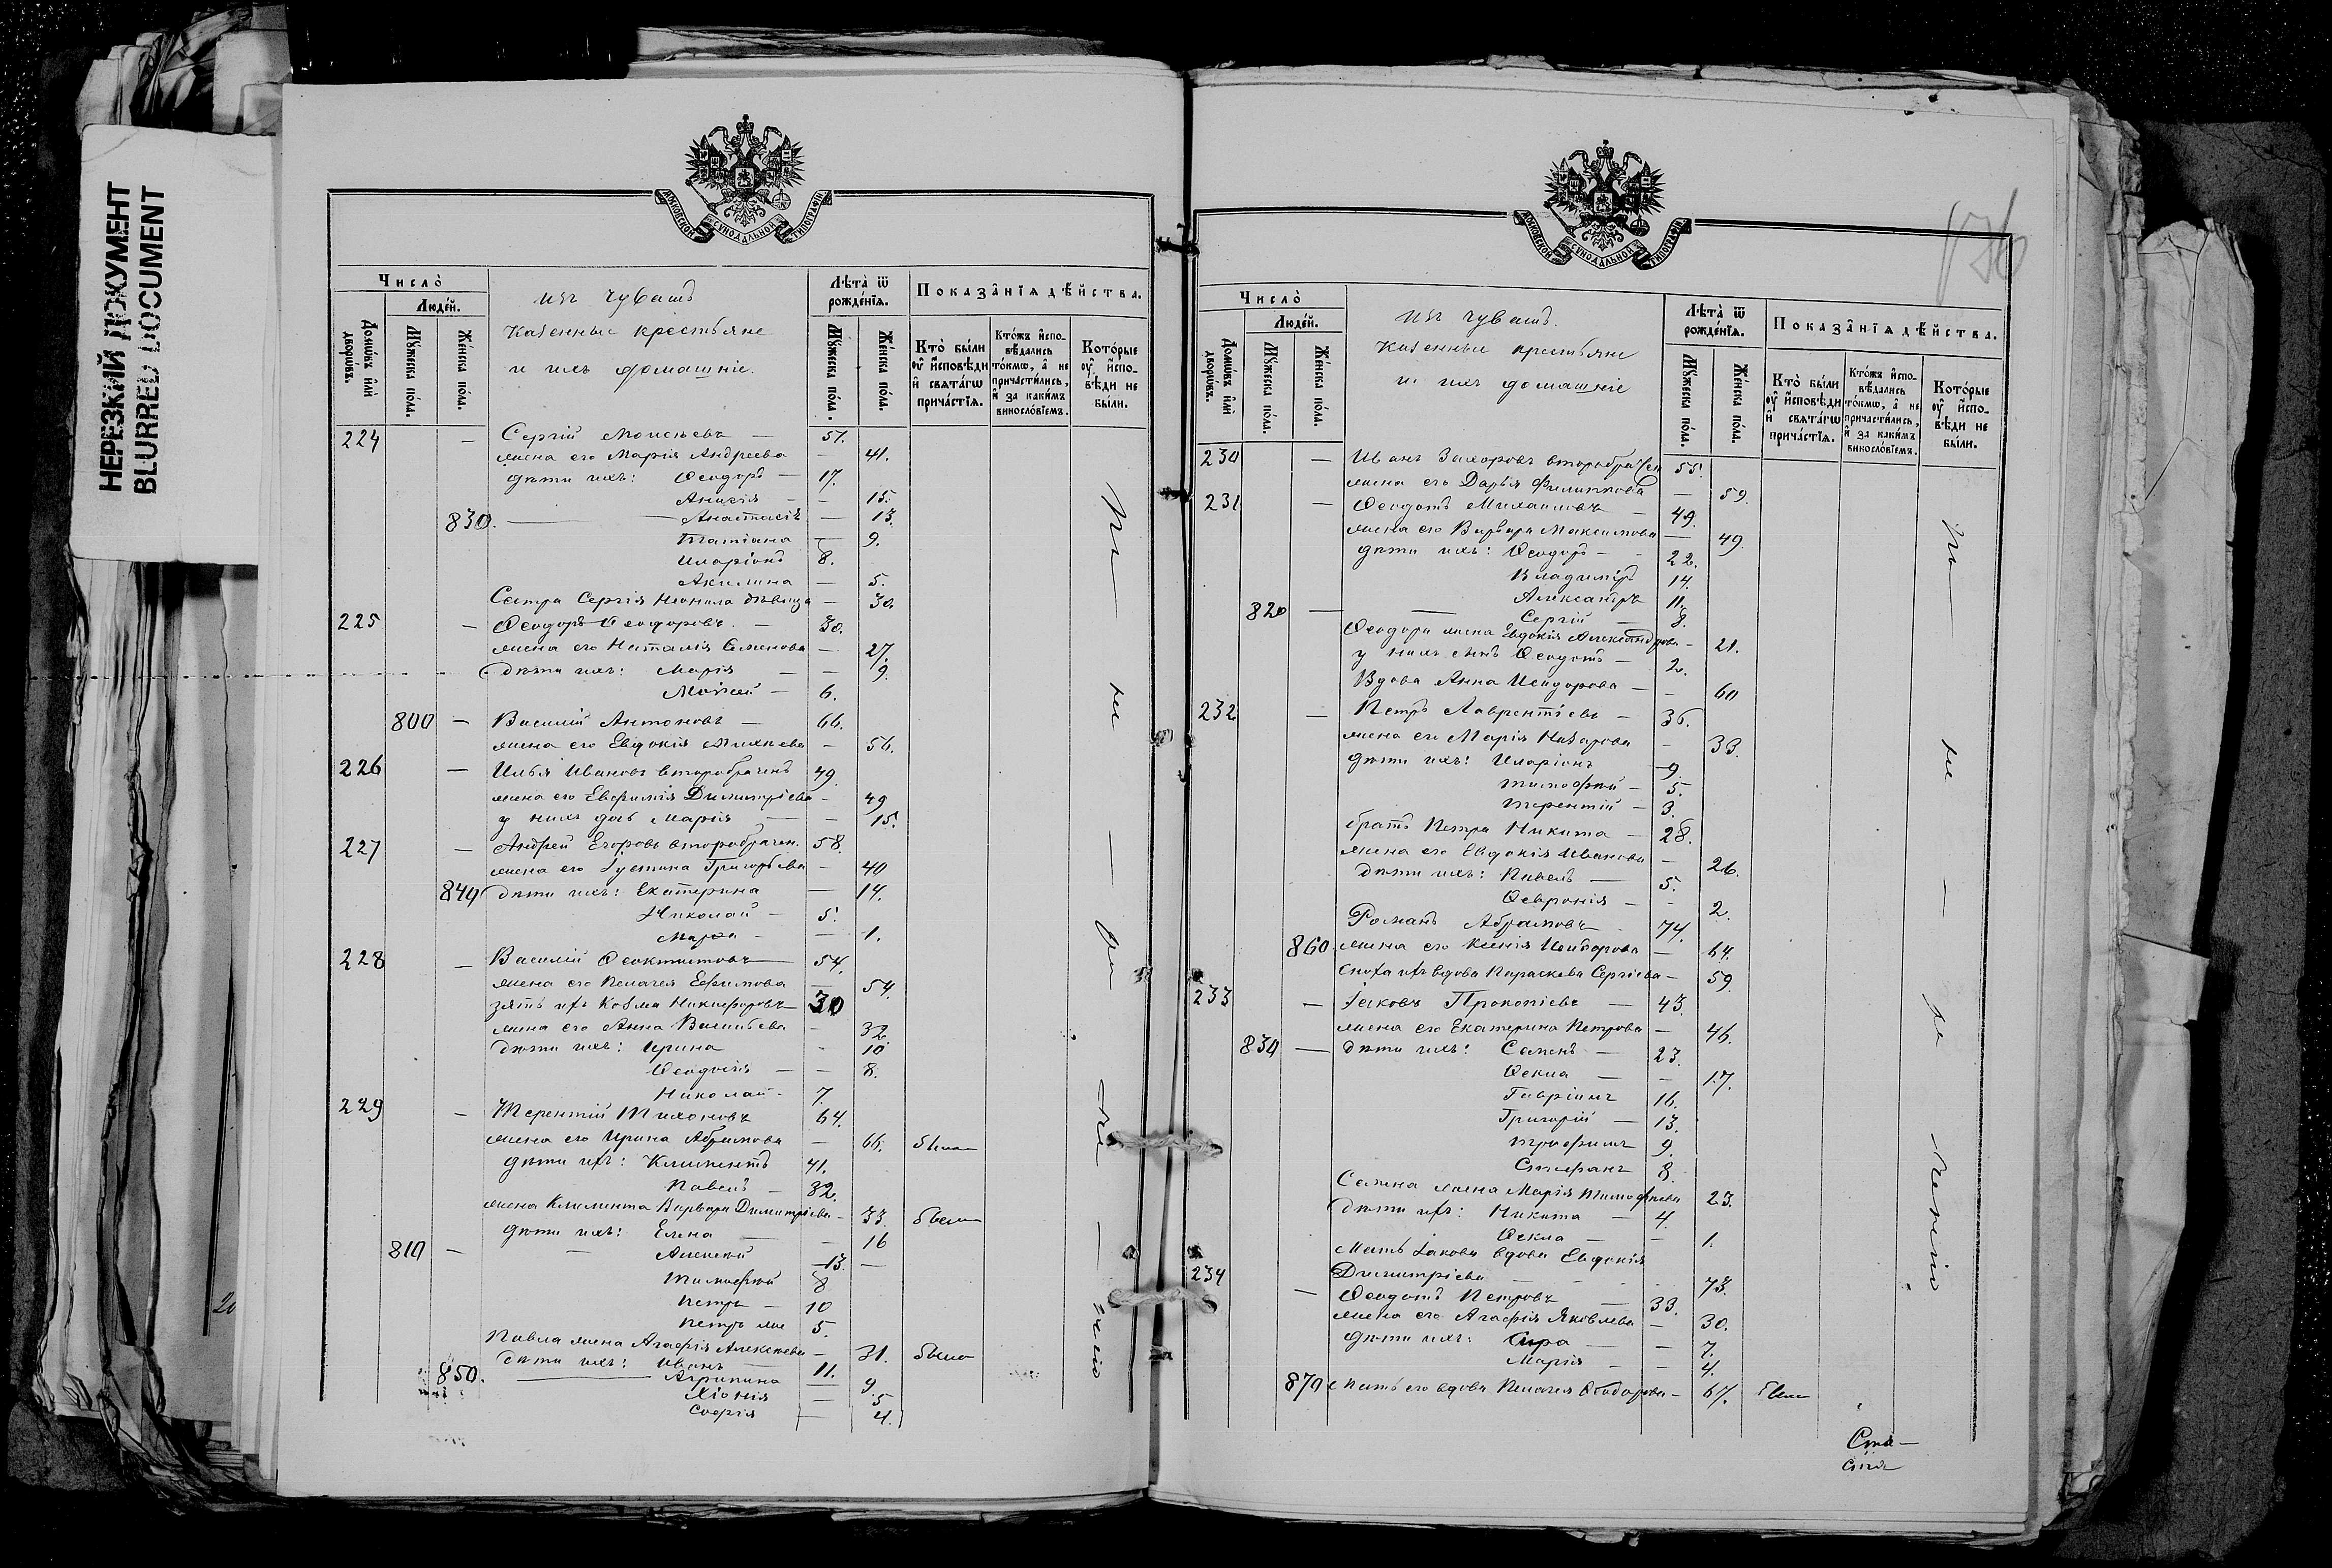 НЕРЕЗКИЙ ДОКУМЕНТ
BLURRED DOCUMENT
МОСКОВСКОЙ СѴНОДАЛЬНОЙ ТИПОГРАФІИ
Число̀
Люде́й.
Домѡ́въ и҆лѝ дворѡ́въ.
Мꙋ́жеска по́ла.
Же́нска по́ла.
изъ чувашъ
Казенные крестьяне
и ихъ домашніе.
Лѣ́та ѿ рожде́нїѧ.
Мꙋ́жеска по́ла.
Же́нска по́ла.
Показа̂нїѧ дѣ́йства.
Кто̀ бы́ли ᲂу҆ и҆сповѣ́ди и҆ свѧта́гѡ прича́стїѧ.
Кто́жъ и҆спо-вѣ́дались то́кмѡ, а҆ не причасти́лись, и҆ за каки́мъ винослові́емъ.
Кото́рые ᲂу҆ и҆спо-вѣ́ди не бы́ли.
224 — Сергій Моисѣевъ — 51.
жена его Марія Андреева — 41.
дѣти ихъ: Ѳеодоръ — 17.
Анисія — 15.
830. Анастасія — 13.
Татіана — 9.
Иларіонъ 8.
Акилина — 5.
Сестра Сергія Неонила дѣвица — 30.
225 — Ѳеодоръ Ѳеодоровъ — 30.
жена его Наталія Семенова — 27.
Дѣти ихъ: Марія — 9.
Моѵсей — 6.
800 — Василій Антоновъ — 66.
жена его Евдокія — 56.
226 — Илья Ивановъ второбраченъ 49.
жена его Евфимія Димитріева — 49
у нихъ дочь Марія — 15.
227 — Андрей Егоровъ второбрачен. 58.
жена его Іустина Григорьева — 40
840 дѣти ихъ: Екатерина — 14.
Николай — 5.
Марѳа — 1.
228 — Василій Ѳеоктистовъ 54.
жена его Пелагея Ефимова — 54.
зять ихъ Козма Никифоровъ 30
жена его Анна Васильева — 32.
дѣти ихъ: Ирина — 10
Ѳеодосія — 8.
Николай 7.
229 — Терентій Тихоновъ 64.
жена его Ирина Абрамова — 66. была
дѣти ихъ: Климентъ 41.
Павелъ — 32.
жена Климента Варвара Димитріева — 33. была
дѣти ихъ: Елена — 16
810 — Алексѣй 13.
Тимофей 8
Петръ — 10
Петръ 5.
Павла жена Агафія Алексѣева — 31. была
дѣти ихъ: Иванъ 11.
850. Агрипина — 9.
Хіонія — 5
Софія — 4.
Число̀
Люде́й.
Домѡ́въ и҆лѝ дворѡ́въ.
Мꙋ́жеска по́ла.
Же́нска по́ла.
изъ чувашъ.
Казенные крестьяне
и ихъ домашніе
Лѣ́та ѿ рожде́нїѧ.
Мꙋ́жеска по́ла.
Же́нска по́ла.
Показа̂нїѧ дѣ́йства.
Кто̀ бы́ли ᲂу҆ и҆сповѣ́ди и҆ свѧта́гѡ прича́стїѧ.
Кто́жъ и҆спо-вѣ́дались то́кмѡ, а҆ не причасти́лись, и҆ за каки́мъ винослові́емъ.
Кото́рые ᲂу҆ и҆спо-вѣ́ди не бы́ли.
230 — Иванъ Захаровъ второбрачен 55.
жена его Дарья Филиппова — 59.
231 — Ѳеодотъ Михаиловъ — 49.
жена его Варвара Максимова — 49.
дѣти ихъ: Ѳеодоръ — 22.
Владиміръ 14.
Александръ 11.
820 — Сергій — 8.
Ѳеодора жена Евдокія Александрова — 21.
у нихъ сынъ Ѳеодотъ — 2.
Вдова Анна Исидорова — 60
232 — Петръ Лаврентіевъ — 36.
жена его Марія Назарова — 33.
дѣти ихъ: Иларіонъ 9.
Тимофей — 5.
Терентій — 3.
братъ Петра Никита — 28.
жена его Евдокія Иванова — 26.
дѣти ихъ: Павелъ — 5.
Ѳеврoнія — 2.
Романъ Абрамовъ 74.
860 жена его Ксенія Исидорова — 64.
сноха ихъ вдова Параскева Сергіева — 59.
233 — Іаковъ Прокопіевъ — 43.
жена его Екатерина Петрова — 46.
830 — дѣти ихъ: Семенъ — 23.
Ѳекла — 17.
Гавріилъ 16.
Григорій — 13.
Трофимъ 9.
Стефанъ 8.
Семена жена Марія Тимофѣева 23.
дѣти ихъ: Никита — 4.
Ѳекла — 1.
Мать Іакова вдова Евдокія
234 Димитріева — 73.
— Ѳеодотъ Петровъ — 33.
жена его Агафія Яковлева — 30.
дѣти ихъ: — 7.
Марія — 4.
870 мать его вдова Пелагея Ѳеодорова — 67. была
Ста-